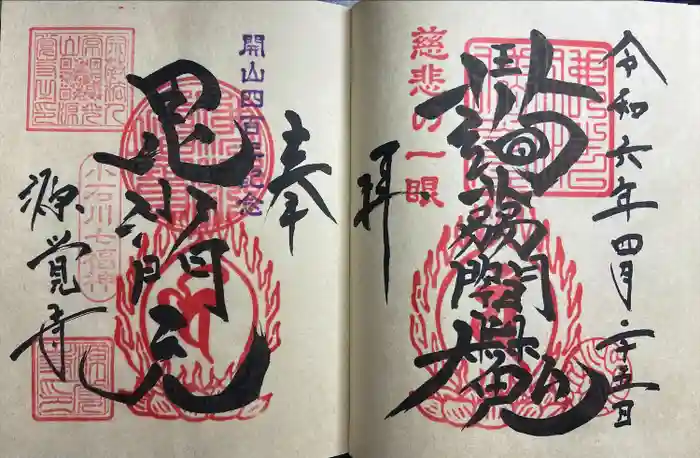 令和六年四月二十五日
慈悲の一眼
蒟蒻閻魔
拝
奉
開山四百年記念
毘沙門天
小石川七福神
源覚寺